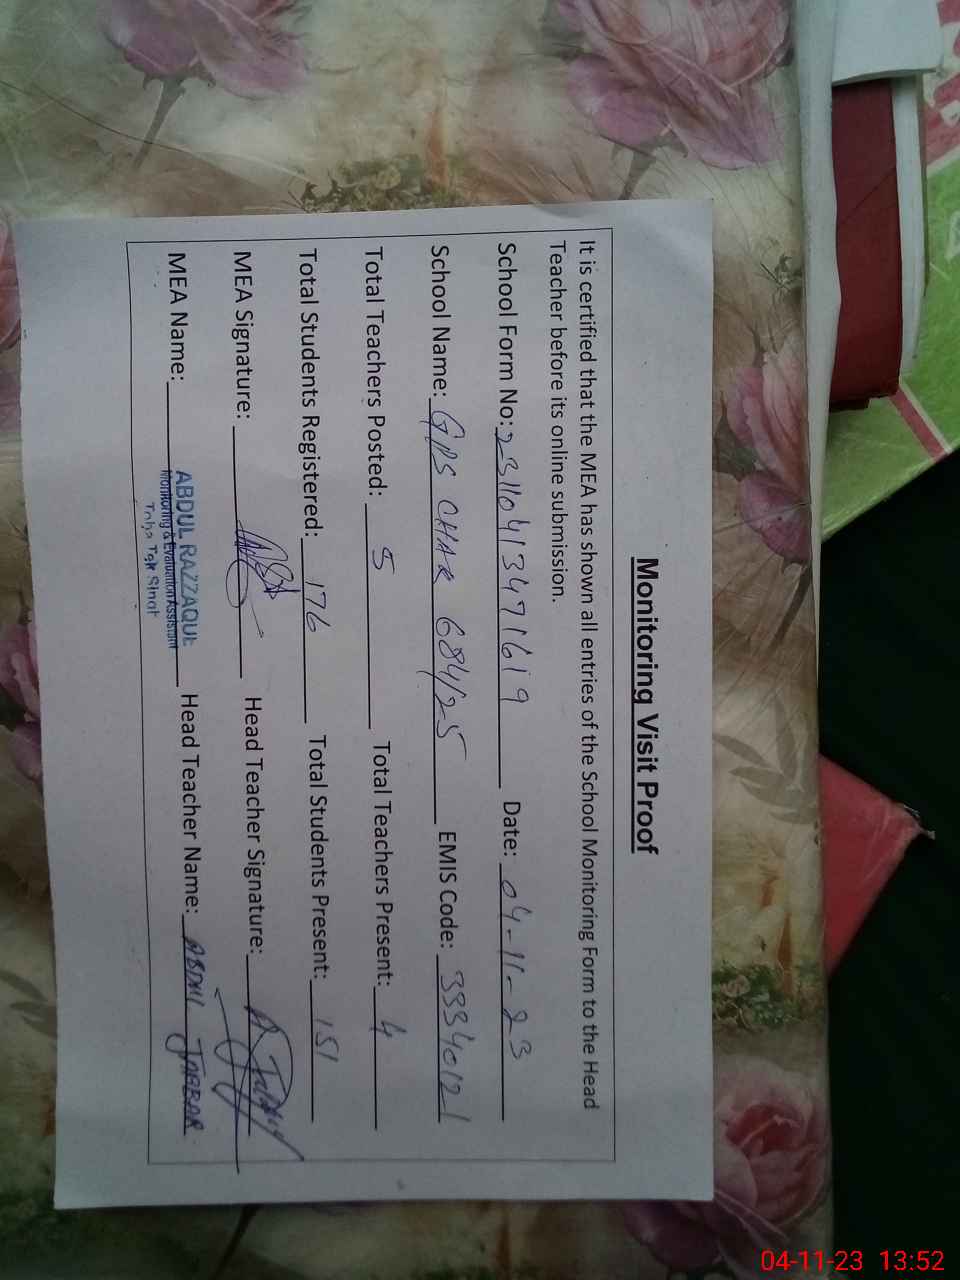 Monitoring Visit Proof
It is certified that the MEA has shown all entries of the School Monitoring Form to the Head
Teacher before its online submission.
School Form No: 231104134971619 Date: 04-11-23
School Name: GPS CHAK 684/25 EMIS Code: 33340121
Total Teachers Posted: 5 Total Teachers Present: 4
Total Students Registered: 176 Total Students Present: 151
MEA Signature: Head Teacher Signature:
MEA Name: ABDUL RAZZAQUE Head Teacher Name: ABDUL JABBAR
Monitoring & Evaluation Assistant
04-11-23 13:52